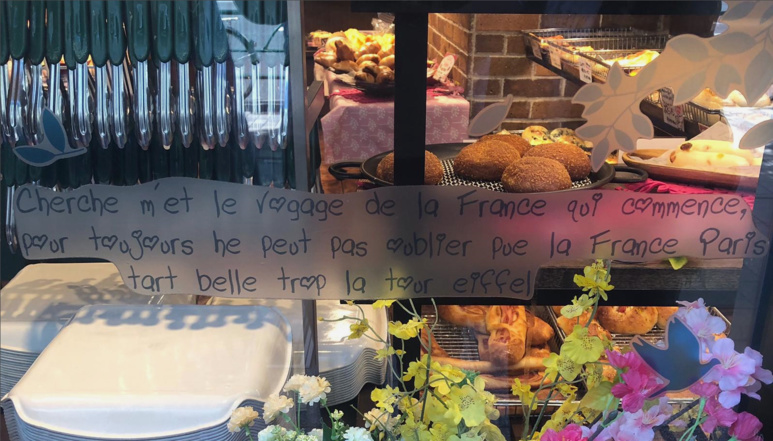 Cherche m'et le vogage de la France qui commence,
pour toujours he peut pas oublier pue la France Paris
tart belle trop la tour eiffel